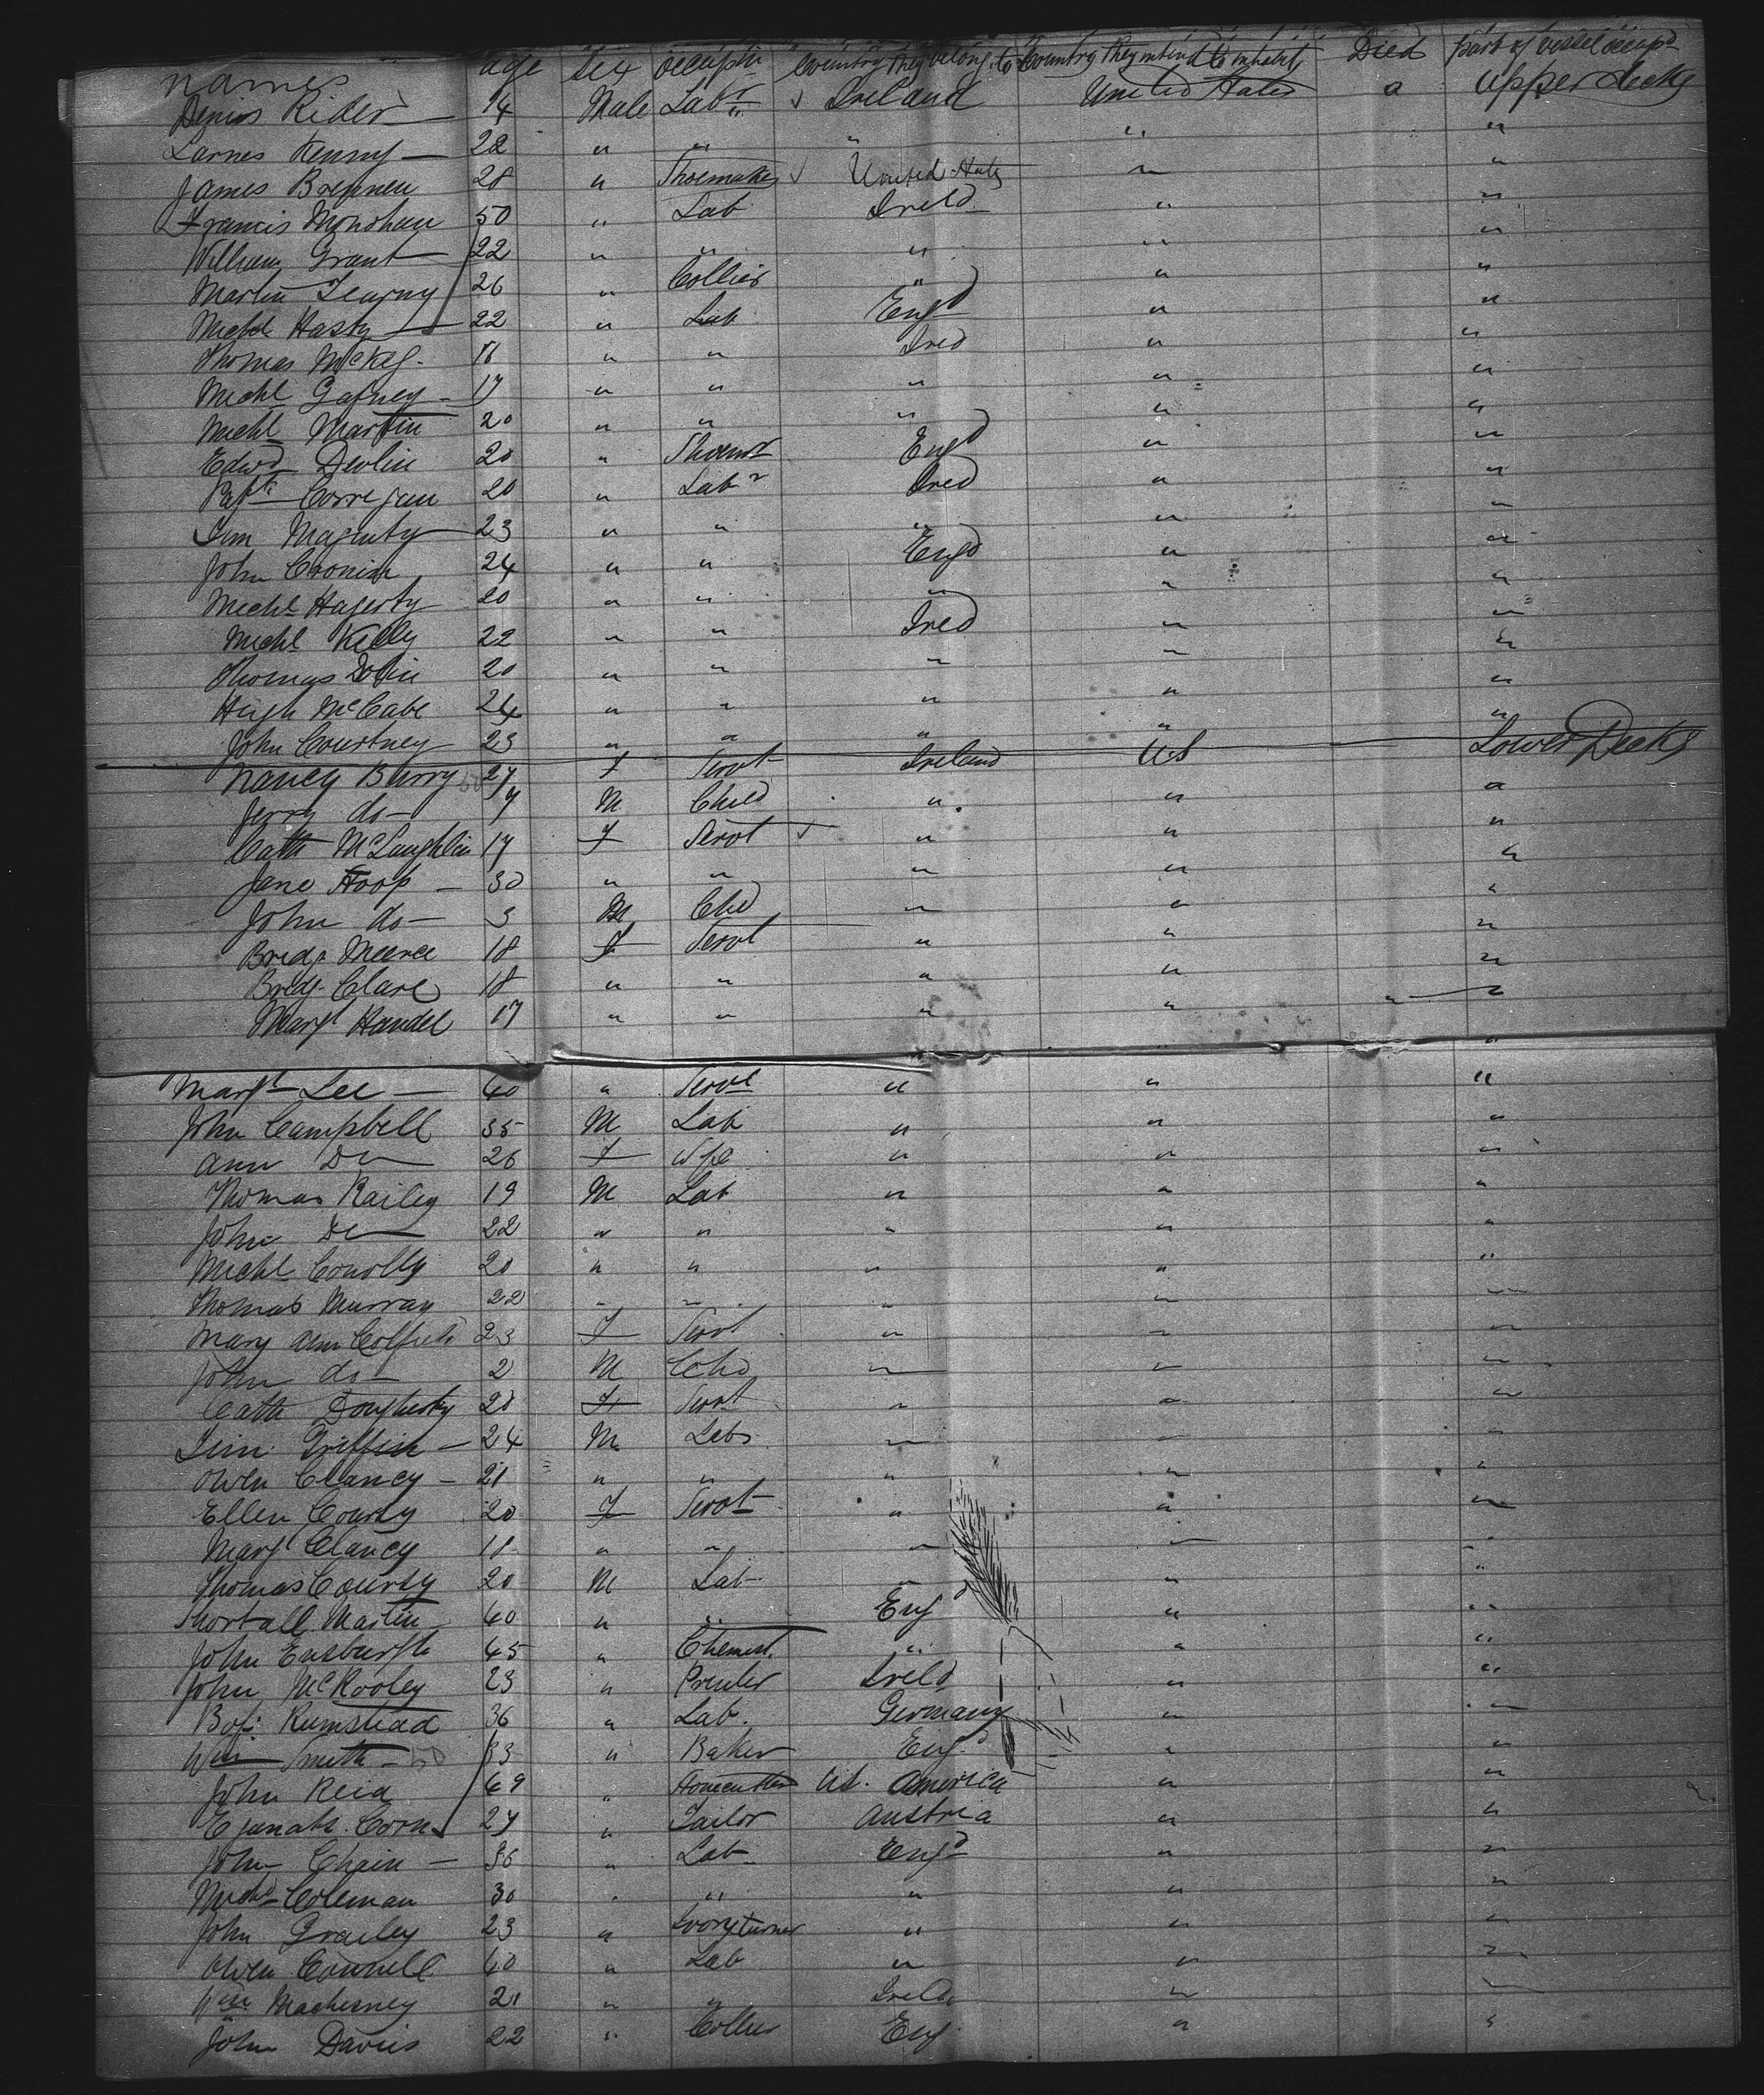 names age sex occupatn Country they belong to Country they intend to inhabit Died part of vessel occupd
Denis Rider 14 Male Labr Ireland United States " Upper decks
Larnes Kenny 22 " " " " "
James Brennen 28 " Shoemaker United States " "
Francis Monohan 50 " Lab Ireld " "
William Grant 22 " " " " "
Martin Fearny 26 " Collier " " "
Michl Hasty 22 " Lab Engd " "
Thomas McKey 18 " " Ired " "
Michl Gafney 17 " " " " "
Michl Martin 20 " " " " "
Edwd Devlin 20 " Shoemr Engd " "
Patk Corregan 20 " Labr Ired " "
Jim Magenty 23 " " " " "
John Cronin 24 " " Engd " "
Michl Hagerty 20 " " " " "
Michl Kelly 22 " " Ired " "
Thomas Dolin 20 " " " " "
Hugh McCabe 24 " " " " "
John Courtney 23 " " " " "
Nancy Burry 27 F Servt Ireland US Lower Decks
Jerry do 7 M Child " " "
Cath McLaughlin 17 F Servt " " "
Jane Hoop 30 " " " " "
John do 3 M Chd " " "
Bridg Meerce 18 F Servt " " "
Bridg Clare 18 " " " " "
Margt Handel 17 " " " " "
Margt Lee 40 " Servt " " "
John Campbell 35 M Lab " " "
Ann Do 26 F Wfe " " "
Thomas Railey 19 M Lab " " "
John Do 22 " " " " "
Michl Conolly 20 " " " " "
Thomas Murray 22 " " " " "
Mary Ann Colfield 23 F Servt " " "
John do 2 M Chd " " "
Cath Dougherty 20 F Servt " " "
Jim Griffin 24 M Labr " " "
Owen Clancy 21 " " " " "
Ellen Coursy 20 F Servt " " "
Margt Clancy 18 " " " " "
Thomas Coursy 20 M Lab " " "
Shortall Martin 40 " " Eng " "
John Ensburgh 45 " Chemist " " "
John McRooley 23 " Printer Ireld " "
Rumstead 36 " Lab. Germany " "
Wm Smith 33 " Baker Engd " "
John Reid 49 " Stonecutter US. America " "
Corn 27 " Tailor Austria " "
John Chain 36 " Lab Engd " "
Michl Coleman 30 " " " " "
John Grailey 23 " Ivory turner " " "
Owen Connell 40 " Lab " " "
Wm Macherney 21 " " Ireld. " "
John Davis 22 " Collier Eng " "